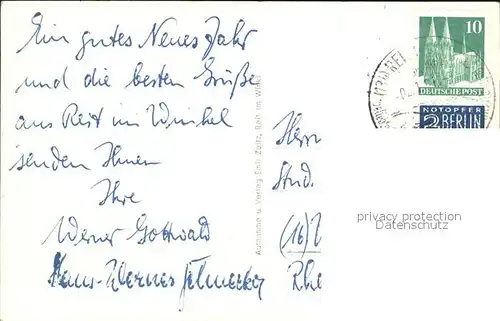 Ein gutes Neues Jahr
und die besten Grüße
aus Reit im Winkel
senden Ihnen
Ihre
Werner Gottwald
Hans-Werner
Aufnahme u. Verlag Reit im Winkl
Herrn
Stud.
(16)
Rhe
10
DEUTSCHE POST
NOTOPFER
2 BERLIN
privacy protection
Datenschutz